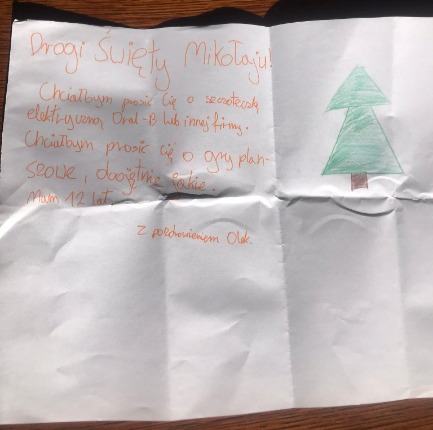 Drogi Święty Mikołaju!
Chciałbym prosić Cię o szczoteczkę
elektryczną Oral-B lub innej firmy.
Chciałbym prosić cię o gry plan-
szowe, obojętnie jakie.
Mam 12 lat.
Z pozdrowieniem Olek.